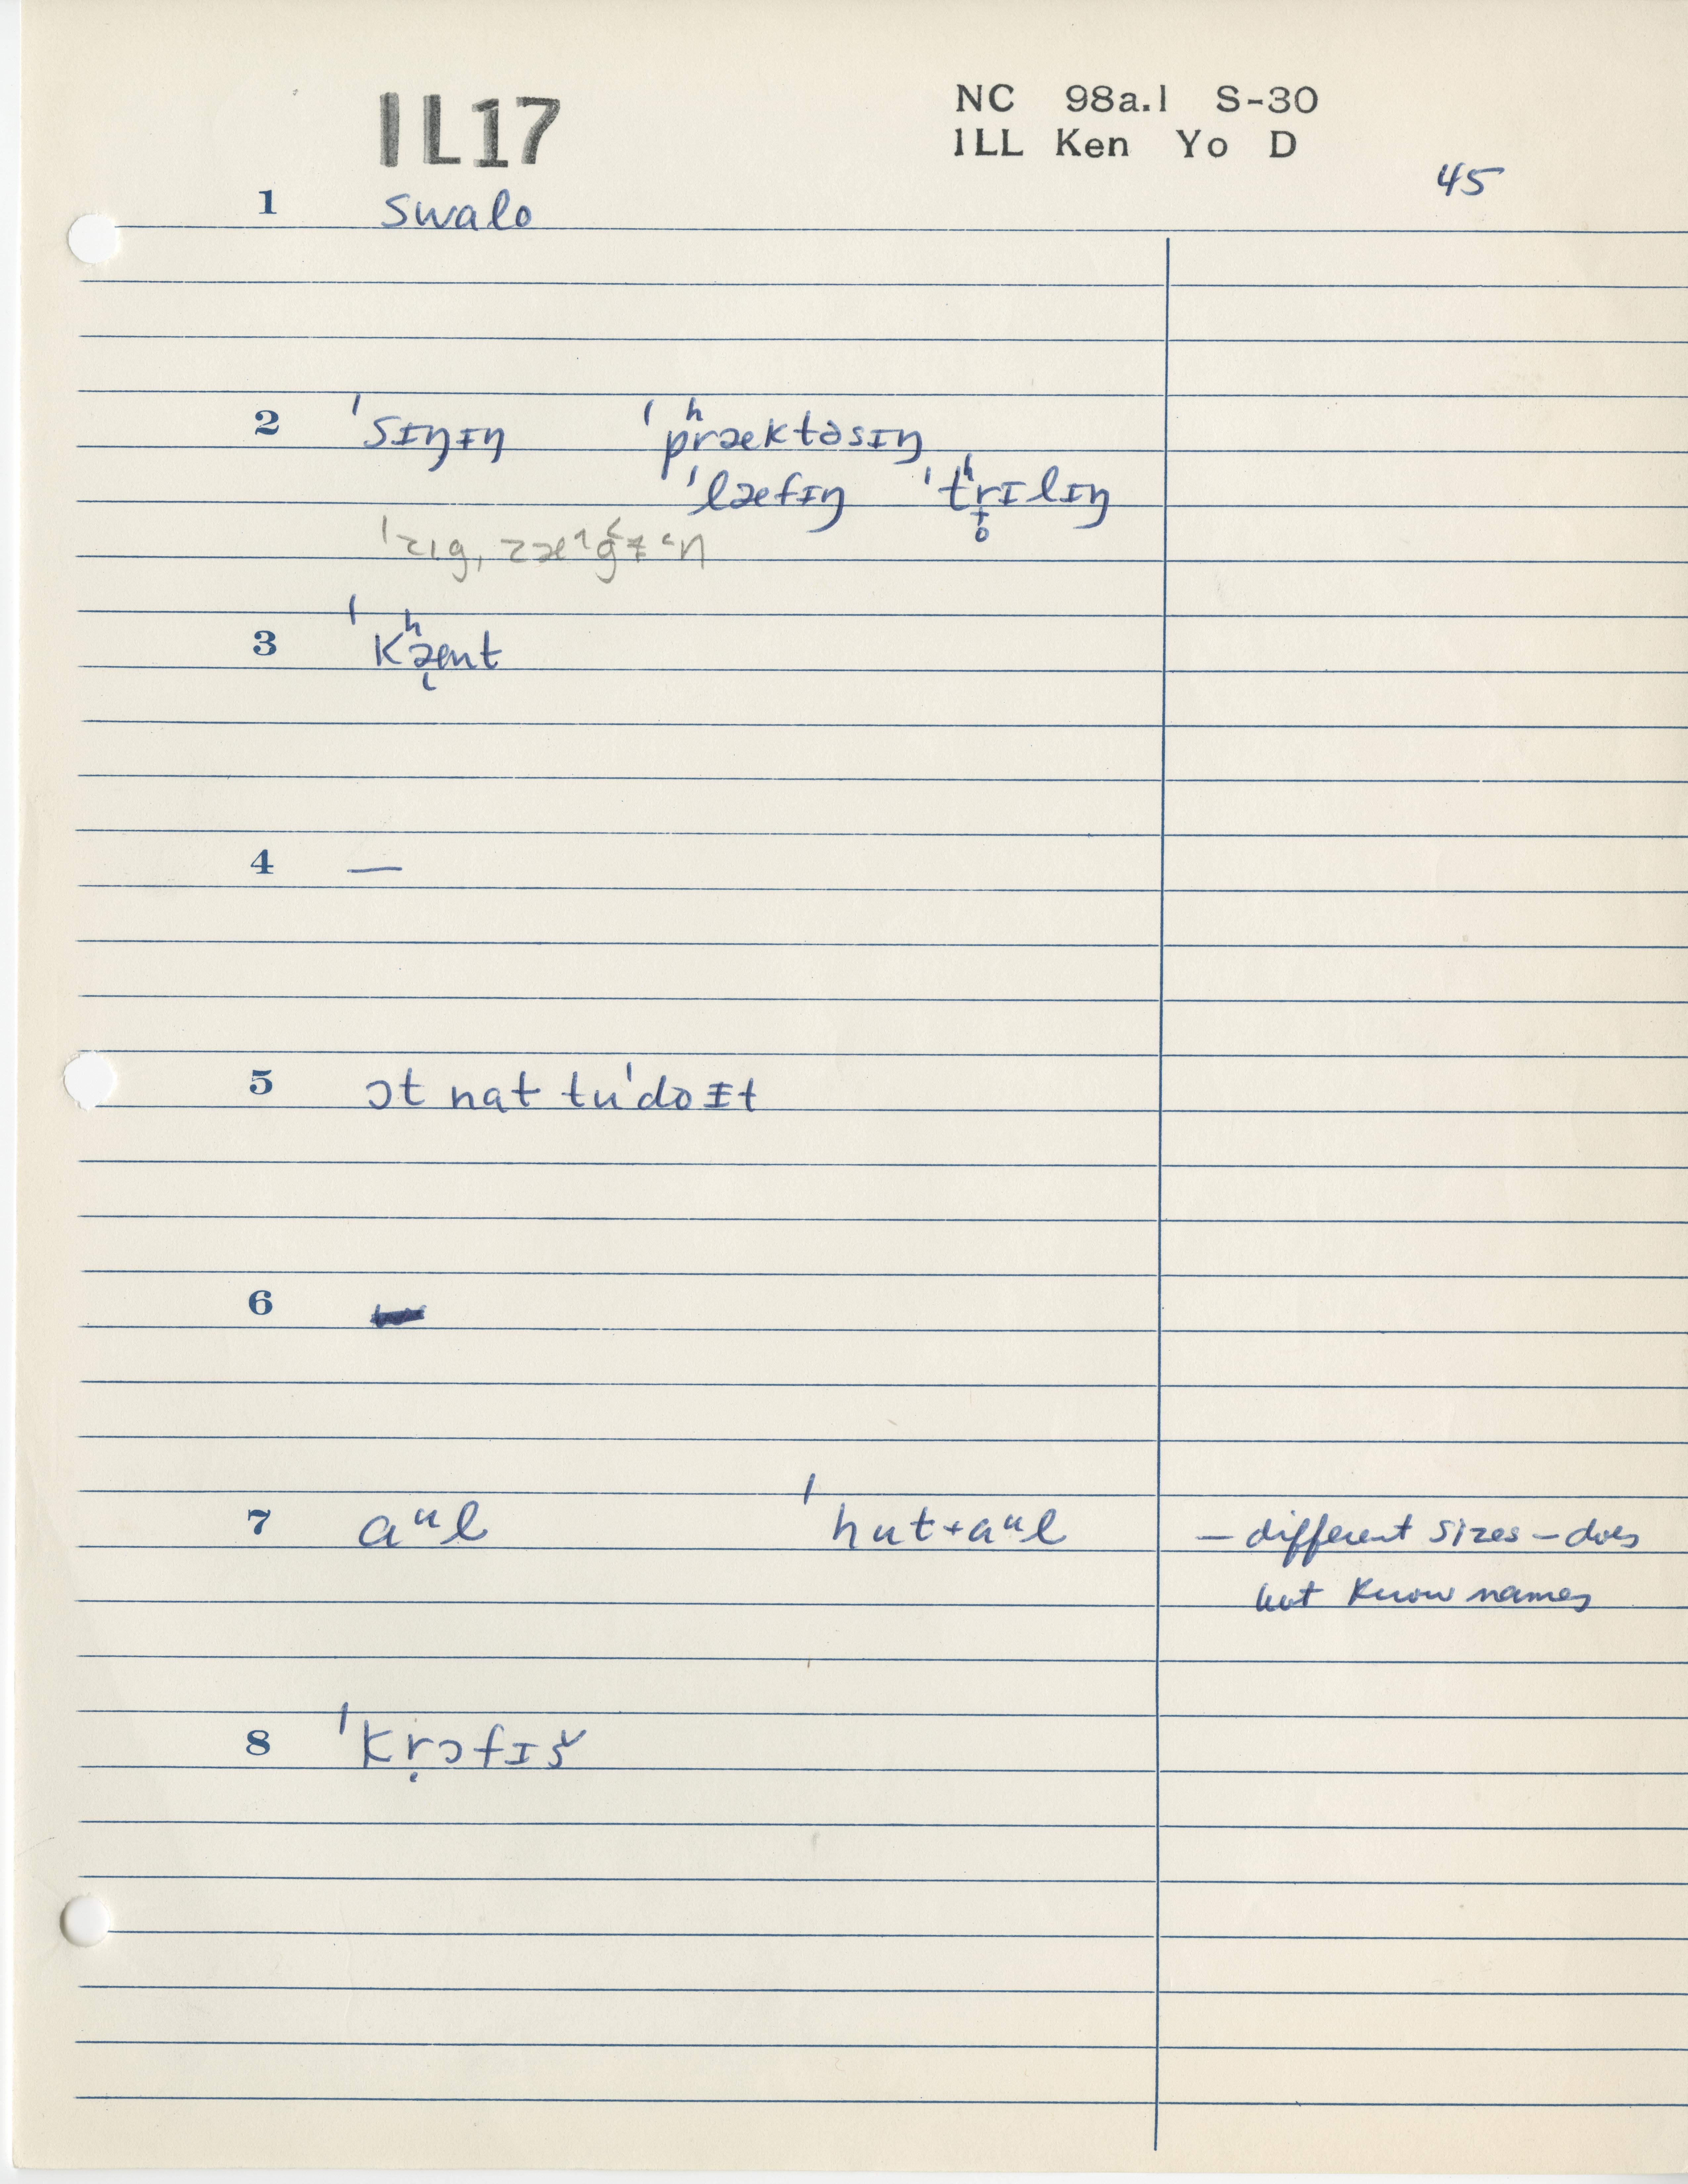 IL17
NC 98a.1 S-30
ILL Ken Yo D
45
1 swalo
2 ˈsɪŋɪŋ ˈpʰræktəsɪŋ
ˈlæfɪŋ ˈtʰr̥ɪlɪŋ
3 ˈkʰænt
4 —
5 ɔt nat tuˈdo ɪt
6
7 aᵘl ˈhut+aᵘl — different sizes – does
not know names
8 ˈkṛɔfɪš